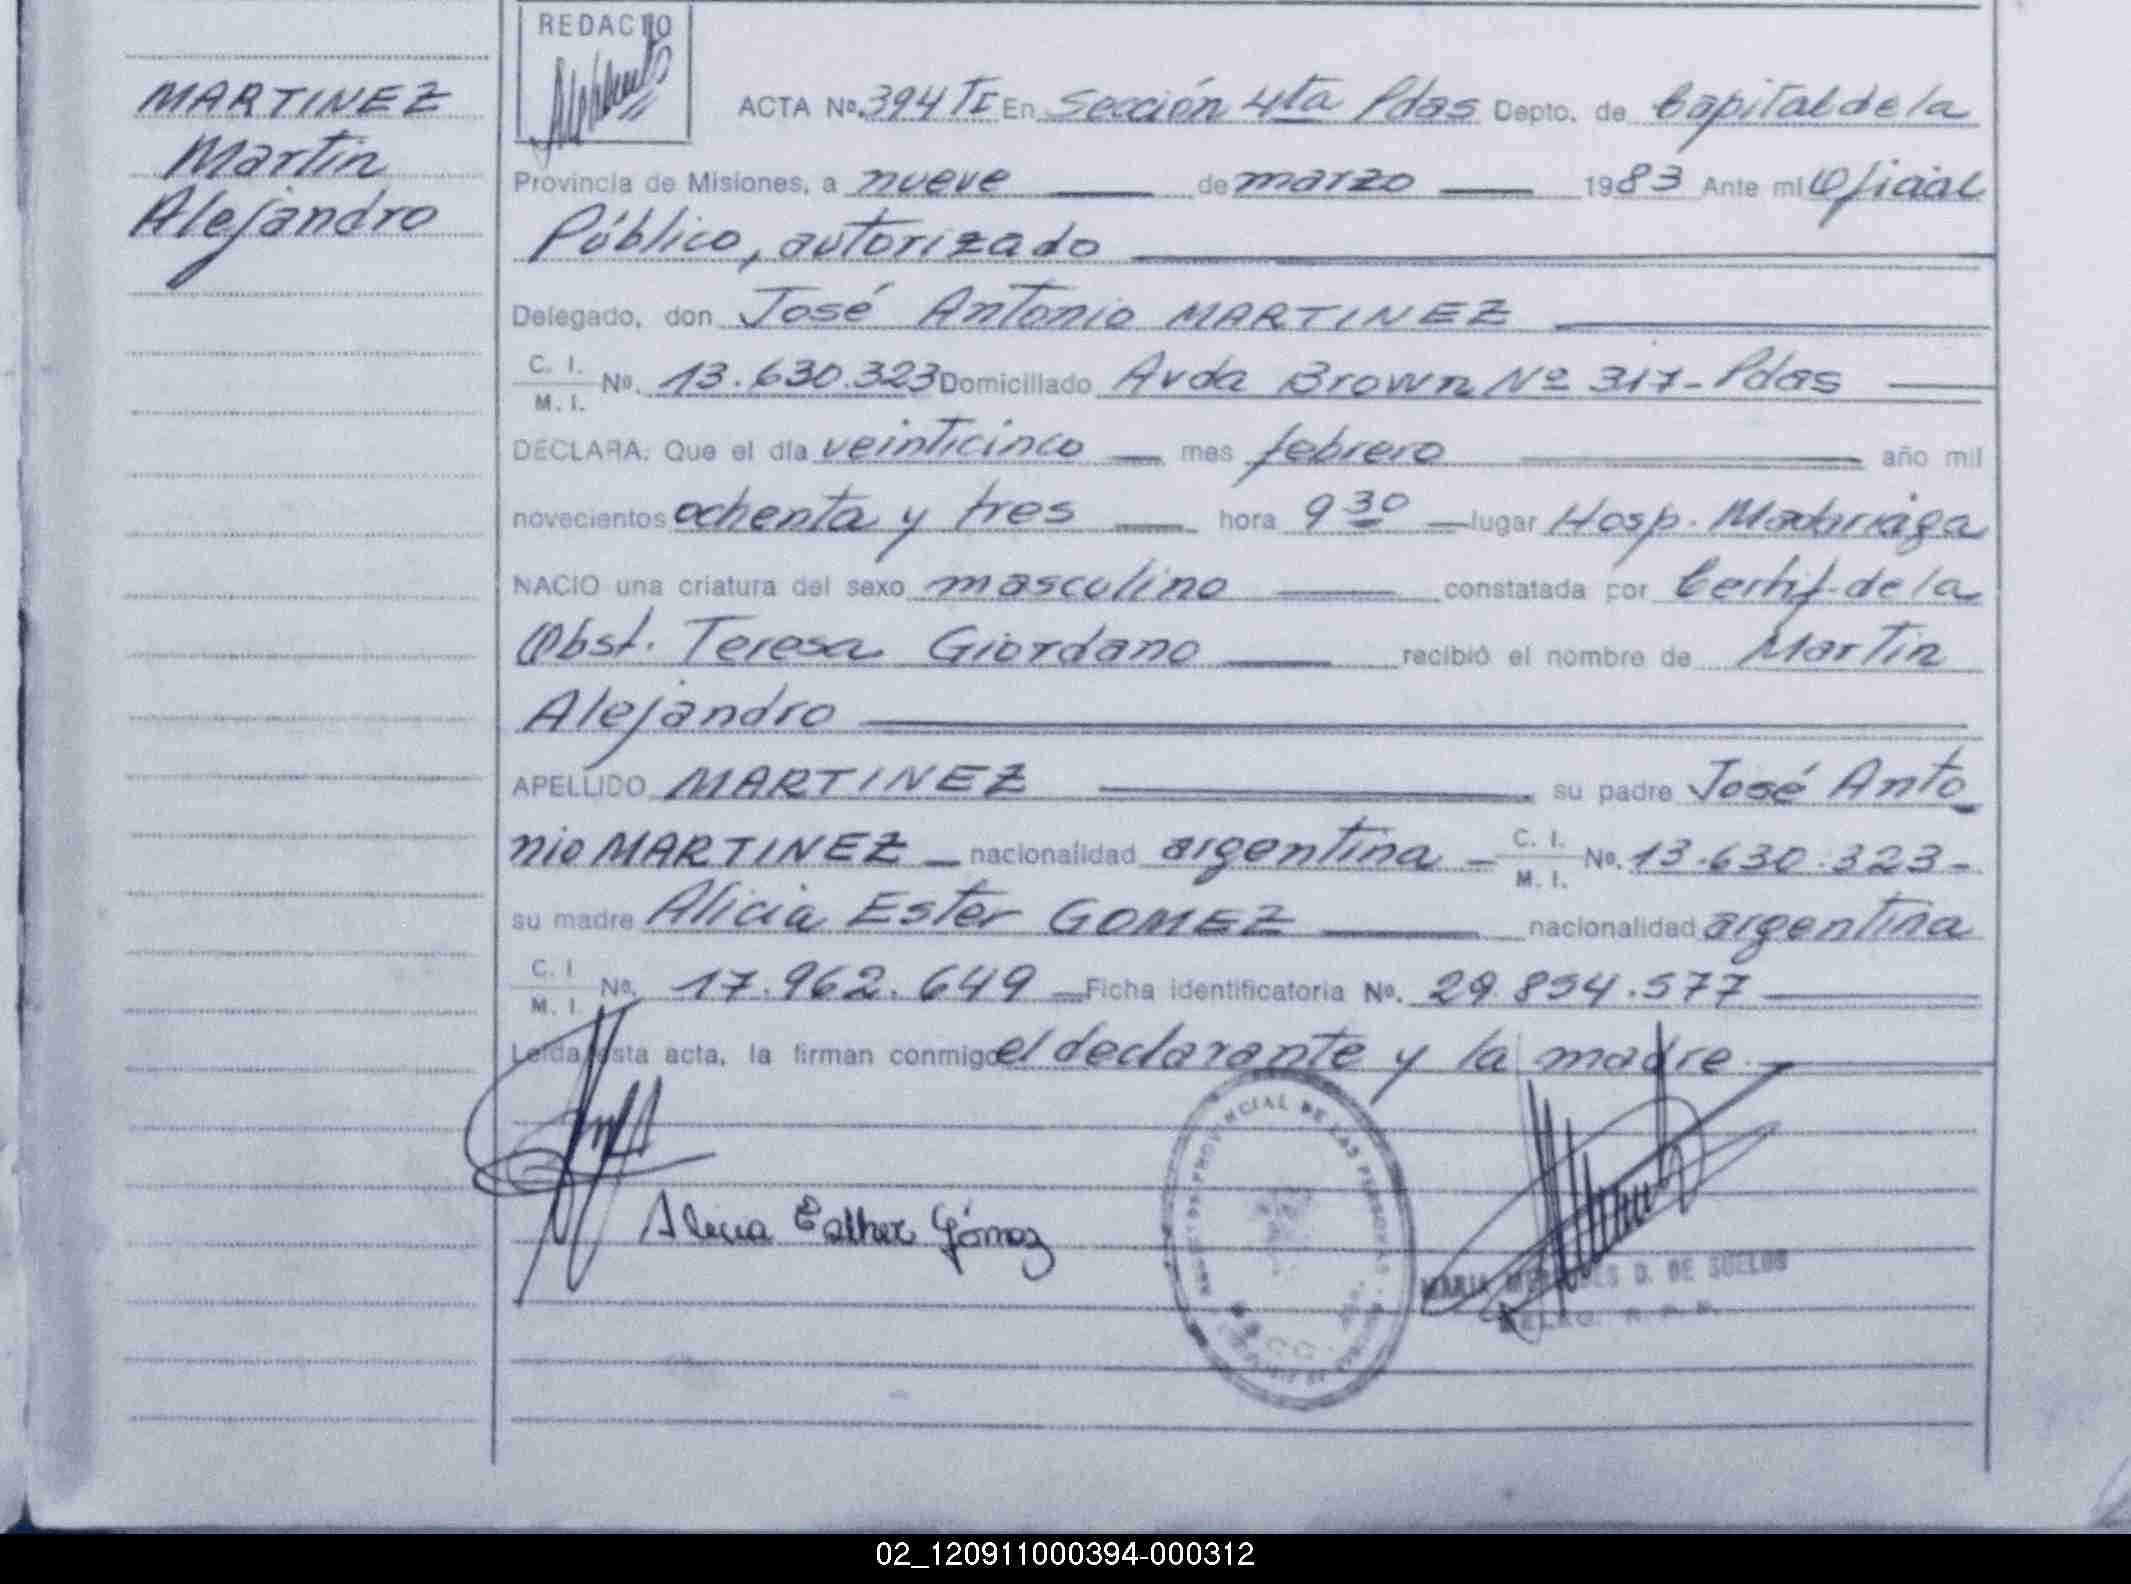 MARTINEZ
Martin
Alejandro
REDACTO
ACTA Nº. 394 TI En Sección 4ta Pdas Depto. de Capital de la
Provincia de Misiones, a nueve de marzo 1983 Ante mi Oficial
Público, autorizado
Delegado, don José Antonio MARTINEZ
C. I.
M. I. Nº. 13.630.323 Domiciliado Avda Brown Nº 317-Pdas
DECLARA: Que el día veinticinco mes febrero año mil
novecientos ochenta y tres hora 9 30 lugar Hosp. Madariaga
NACIO una criatura del sexo masculino constatada por Certif. de la
Obst. Teresa Giordano recibió el nombre de Martin
Alejandro
APELLIDO MARTINEZ su padre José Anto
nio MARTINEZ nacionalidad argentina C. I.
M. I. Nº. 13.630.323-
su madre Alicia Ester GOMEZ nacionalidad argentina
C. I
M. I. Nº. 17.962.649 Ficha identificatoria Nº. 29.854.577
Leída esta acta, la firman conmigo el declarante y la madre
Alicia Esther Gómez
PROVINCIAL DE LAS PERSONAS
MARIA D. DE SUELOS
02_120911000394-000312